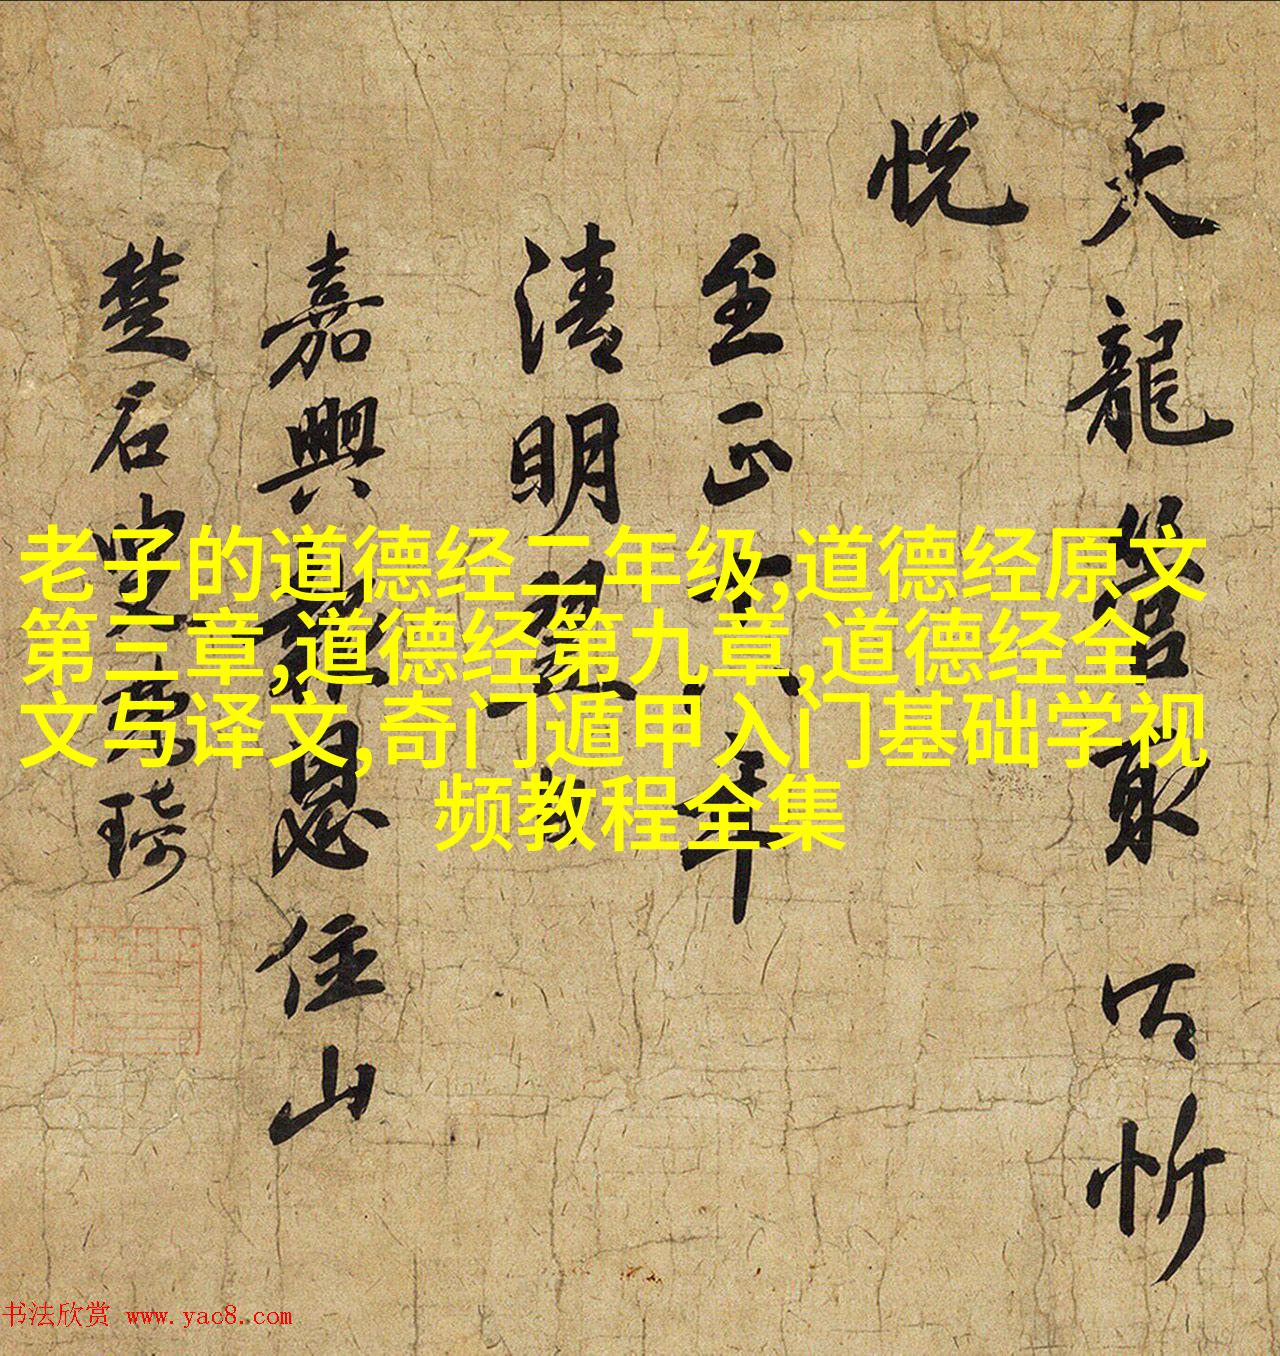 天龍咨耴以忻
悦
至正十八年
清明翌日
嘉興報恩住山
楚石叟梵琦
老子的道德经二年级,道德经原文
第三章,道德经第九章,道德经全
文与译文,奇门遁甲入门基础学视
频教程全集
书法欣赏 www.yac8.com